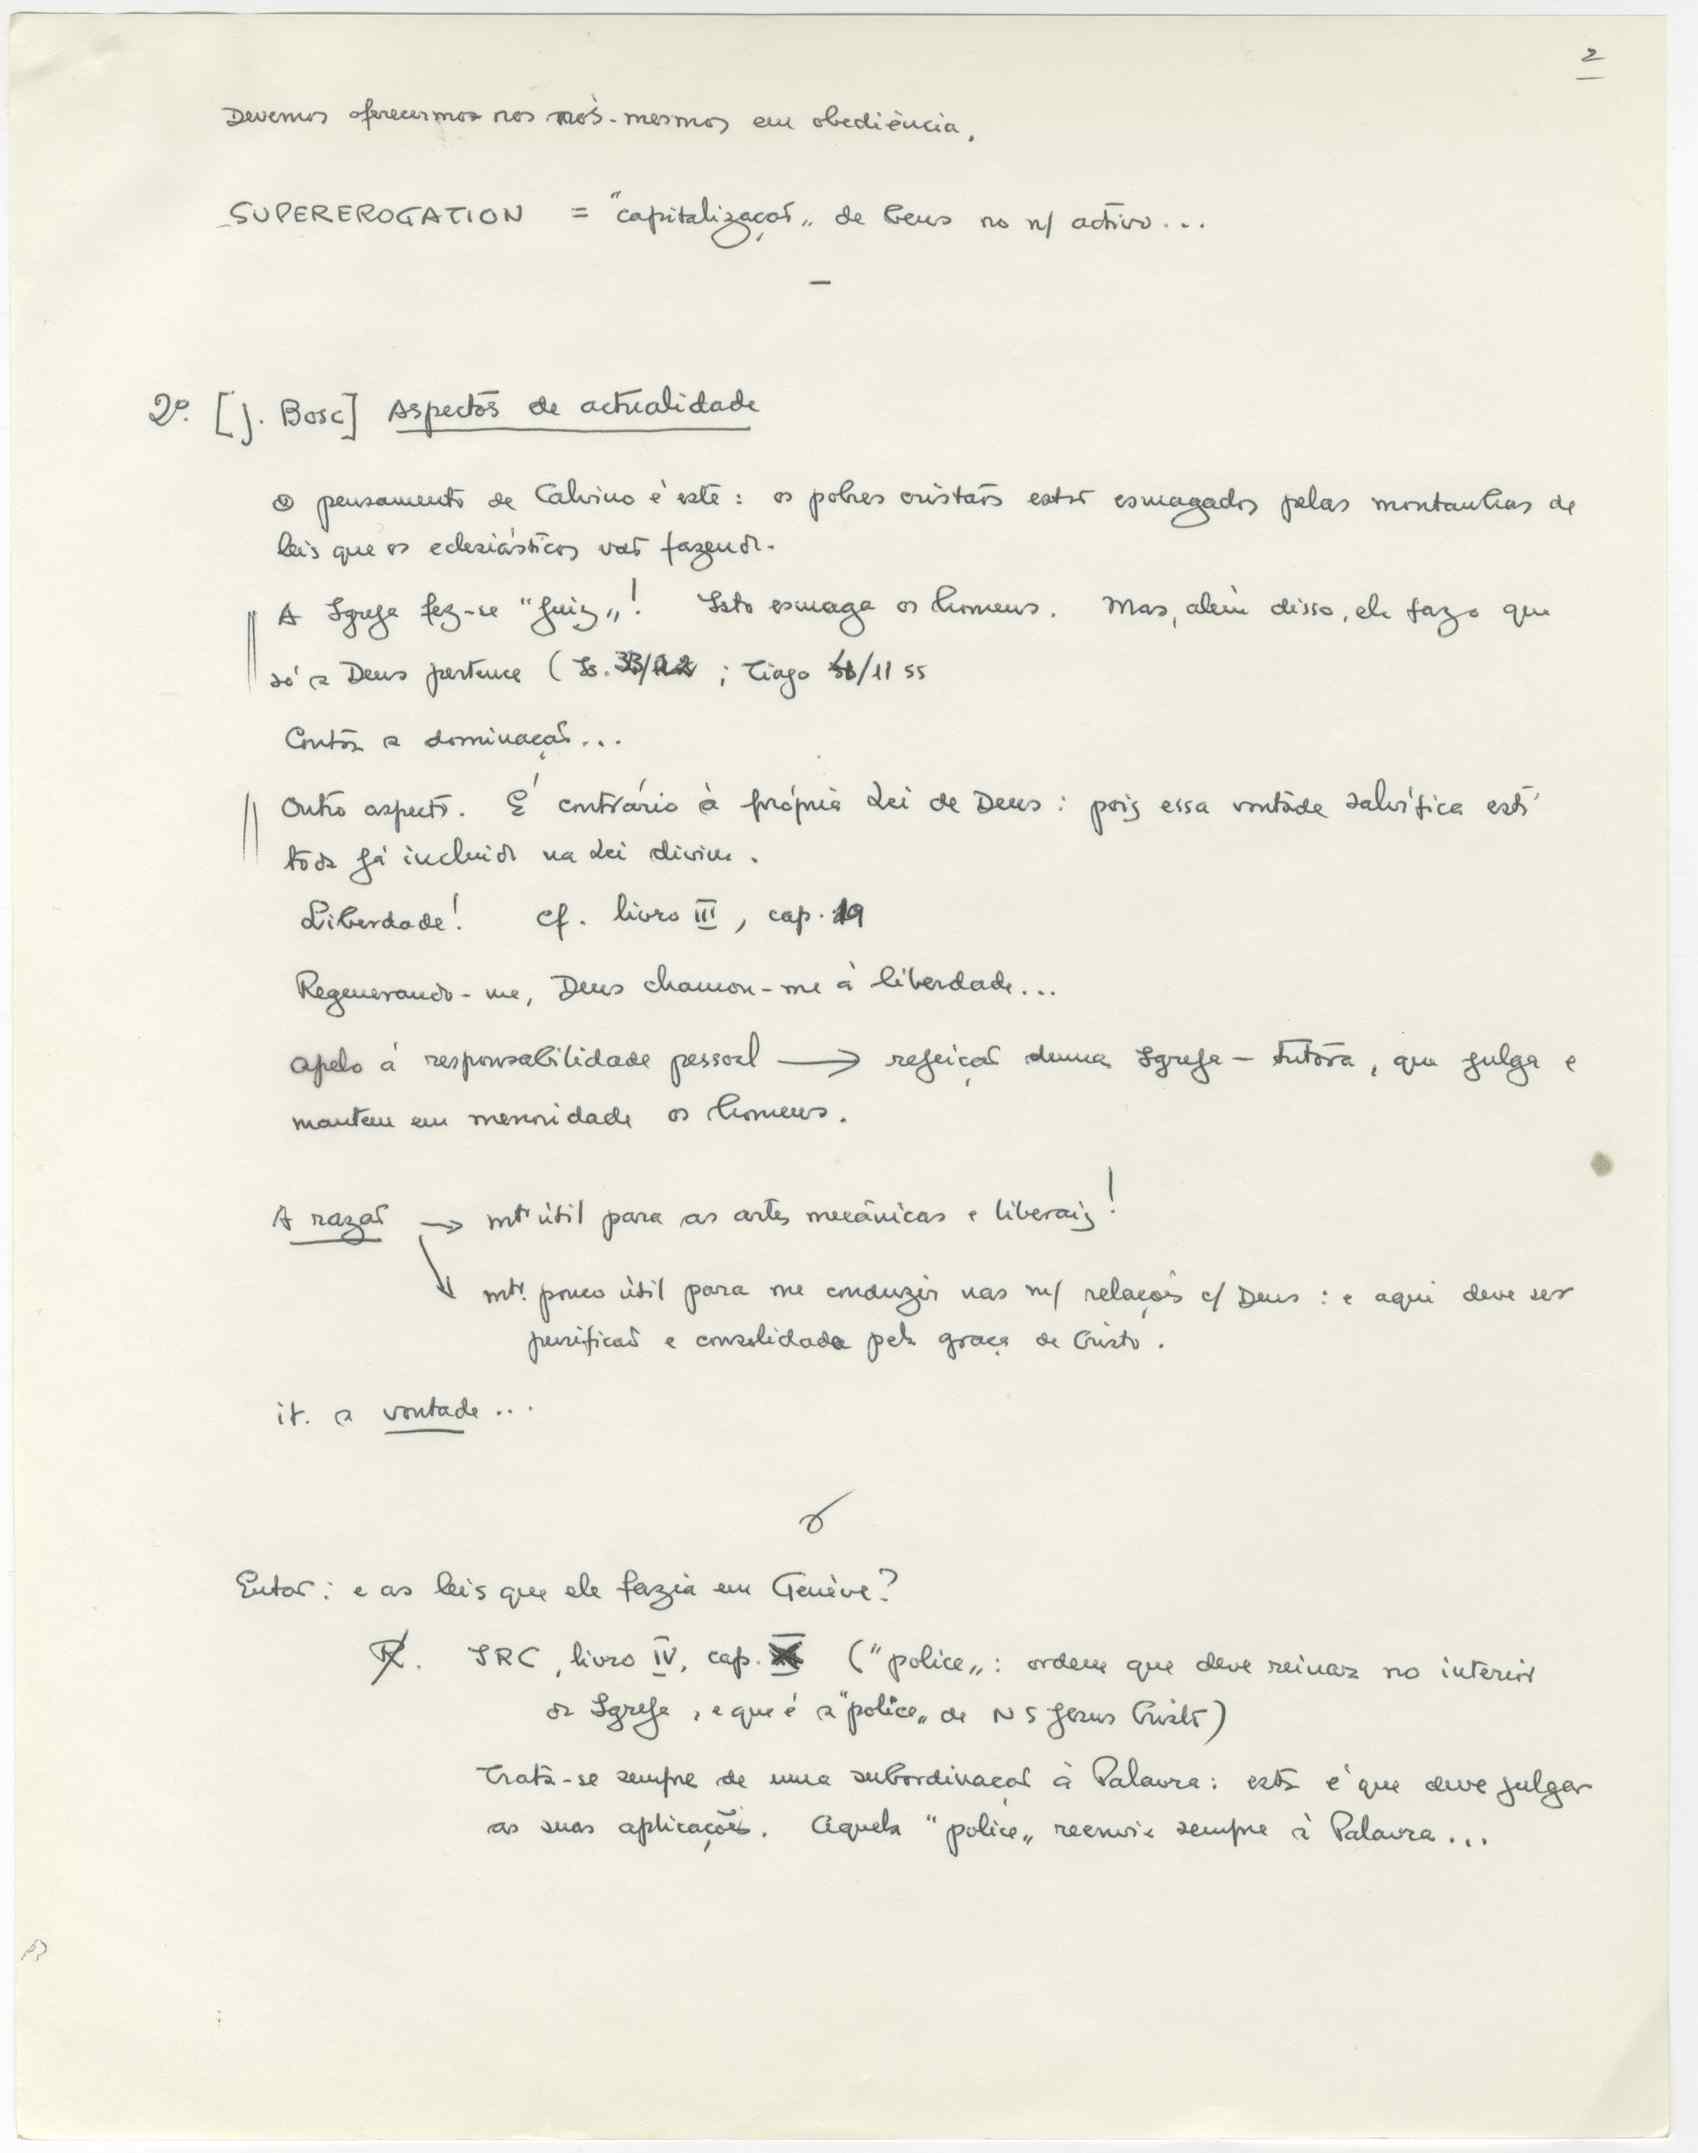 2
Devemos oferecermos nos nós-mesmos em obediência.
SUPEREROGATION = "capitalização" de bens no n/ activo...
—
2º. [J. Bosc] Aspectos de actualidade
O pensamento de Calvino é este: os pobres cristãos estão esmagados pelas montanhas de
leis que os eclesiásticos vão fazendo.
A Igreja fez-se "Juiz"! Isto esmaga os homens. Mas, além disso, ela faz o que
só a Deus pertence (Is. 33/22; Tiago 4/11 ss
Contra a dominação...
Outro aspecto. É contrário à própria Lei de Deus: pois essa vontade salvífica está
toda já incluída na Lei divina.
Liberdade! Cf. livro III, cap. 19
Regenerando-me, Deus chamou-me à liberdade...
Apelo á responsabilidade pessoal → rejeição duma Igreja-tutora, que julga e
mantem em menoridade os homens.
A razão → mtº útil para as artes mecânicas e liberais!
↘ mtº. pouco útil para me conduzir nas m/ relações c/ Deus: e aqui deve ser
purificada e consolidada pela graça de Cristo.
it. a vontade...
Então: e as leis que ele fazia em Genève?
R. IRC, livro IV, cap. ("police": ordem que deve reinar no interior
da Igreja, e que é a "police" de N S Jesus Cristo)
Trata-se sempre de uma subordinação à Palavra: esta é que deve julgar
as suas aplicações. Aquela "police" reenvia sempre à Palavra...